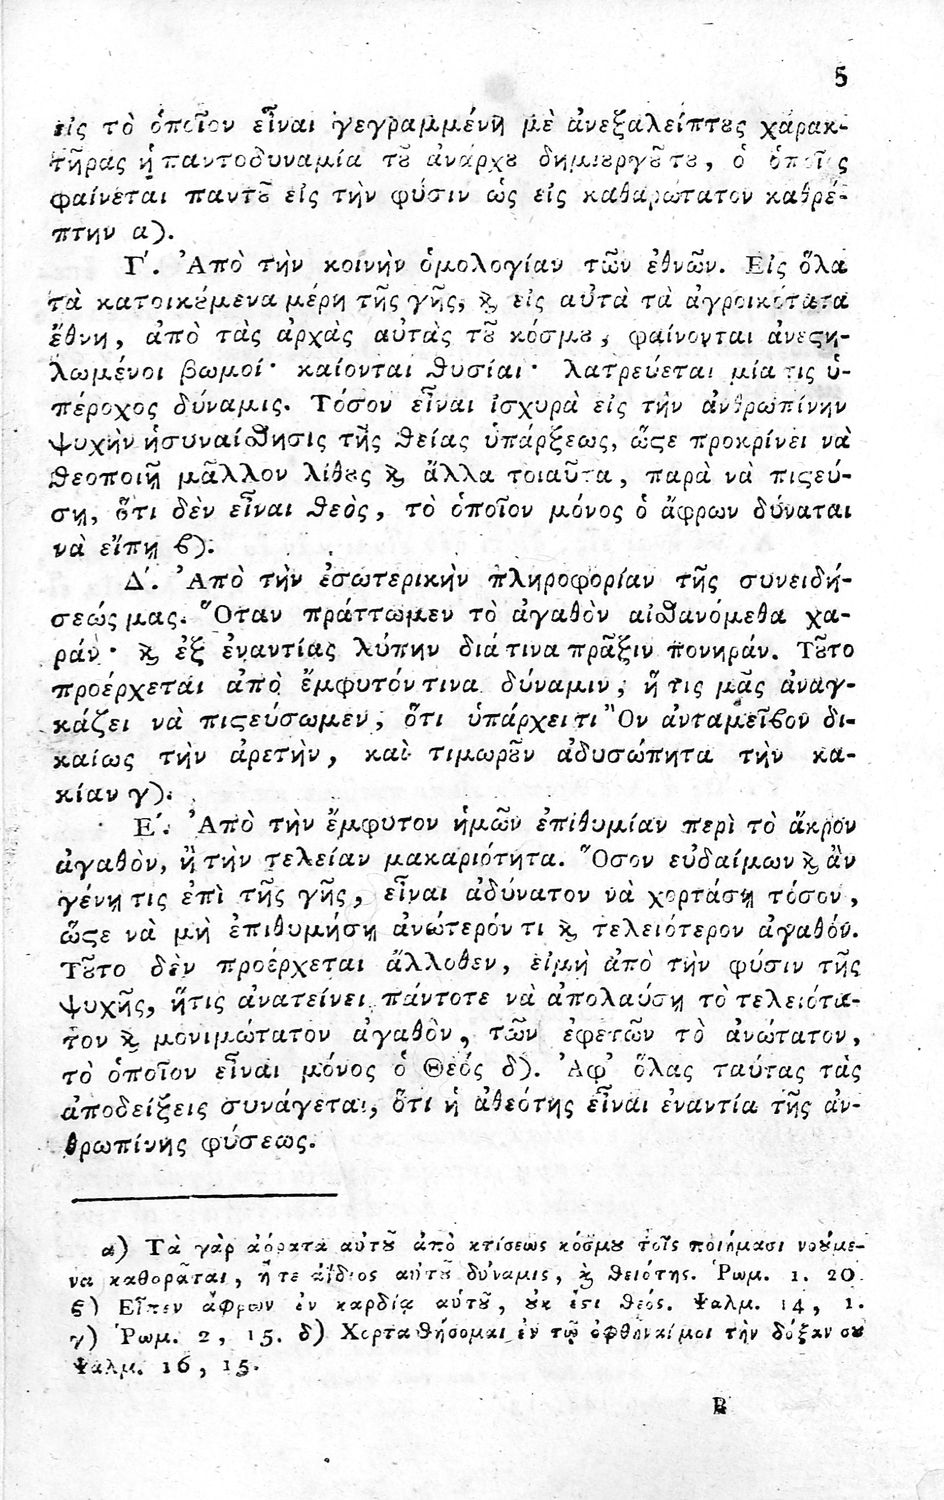 5
εἰς τὸ ὁποῖον εἶναι γεγραμμένη μὲ ἀνεξαλείπτȣς χαρακ-
τῆρας ἡ παντοδυναμία τȣ͂ ἀνάρχȣ δημιȣργȣ͂ τȣ, ὁ ὁποῖος
φαίνεται παντȣ͂ εἰς τὴν φύσιν ὡς εἰς καθαρώτατον καθρέ-
πτην α).
Γ΄. Ἀπὸ τὴν κοινὴν ὁμολογίαν τῶν ἐθνῶν. Εἰς ὅλα
τὰ κατοικȣ́μενα μέρη τῆς γῆς, ϗ εἰς αὐτὰ τὰ ἀγροικότατα
ἔθνη, ἀπὸ τὰς ἀρχὰς αὐτὰς τȣ͂ κόσμȣ, φαίνονται ἀνεϛη-
λωμένοι βωμοί· καίονται θυσίαι· λατρεύεται μία τις ὑ-
πέροχος δύναμις. Τόσον εἶναι ἰσχυρὰ εἰς τὴν ἀνθρωπίνην
ψυχὴν ἡ συναίσθησις τῆς θείας ὑπάρξεως, ὥϛε προκρίνει νὰ
θεοποιῇ μᾶλλον λίθȣς ϗ ἄλλα τοιαῦτα, παρὰ νὰ πιϛεύ-
σῃ, ὅτι δὲν εἶναι θεὸς, τὸ ὁποῖον μόνος ὁ ἄφρων δύναται
νὰ εἴπῃ ϐ).
Δ΄. Ἀπὸ τὴν ἐσωτερικὴν πληροφορίαν τῆς συνειδή-
σεώς μας. Ὅταν πράττωμεν τὸ ἀγαθὸν αἰσθανόμεθα χα-
ράν· ϗ ἐξ ἐναντίας λύπην διά τινα πρᾶξιν πονηράν. Τȣ͂το
προέρχεται ἀπὸ ἔμφυτόν τινα δύναμιν, ἥ τις μᾶς ἀναγ-
κάζει νὰ πιϛεύσωμεν, ὅτι ὑπάρχει τι Ὂν ἀνταμεῖϐον δι-
καίως τὴν ἀρετὴν, καὶ τιμωρȣ͂ν ἀδυσώπητα τὴν κα-
κίαν γ).
Ε΄. Ἀπὸ τὴν ἔμφυτον ἡμῶν ἐπιθυμίαν περὶ τὸ ἄκρον
ἀγαθὸν, ἢ τὴν τελείαν μακαριότητα. Ὅσον εὐδαίμων ϗ ἂν
γένῃ τις ἐπὶ τῆς γῆς, εἶναι ἀδύνατον νὰ χορτάσῃ τόσον,
ὥϛε νὰ μὴ ἐπιθυμήσῃ ἀνώτερόν τι ϗ τελειότερον ἀγαθόν.
Τȣ͂το δὲν προέρχεται ἄλλοθεν, εἰμὴ ἀπὸ τὴν φύσιν τῆς
ψυχῆς, ἥτις ἀνατείνει πάντοτε νὰ ἀπολαύσῃ τὸ τελειότα-
τον ϗ μονιμώτατον ἀγαθὸν, τῶν ἐφετῶν τὸ ἀνώτατον,
τὸ ὁποῖον εἶναι μόνος ὁ Θεός δ). Ἀφ' ὅλας ταύτας τὰς
ἀποδείξεις συνάγεται, ὅτι ἡ ἀθεότης εἶναι ἐναντία τῆς ἀν-
θρωπίνης φύσεως.
α) Τὰ γὰρ ἀόρατα αὐτȣ͂ ἀπὸ κτίσεως κόσμȣ τοῖς ποιήμασι νοȣ́με-
να καθορᾶται, ἥ τε ἀΐδιος αὐτȣ͂ δύναμις, ϗ θειότης. Ῥωμ. 1. 20
ϐ) Εἶπεν ἄφρων ἐν καρδίᾳ αὑτȣ͂, ȣκ ἔϛι θεός. Ψαλμ. 14, 1.
γ) Ῥωμ. 2, 15. δ) Χορτασθήσομαι ἐν τῷ ὀφθῆναί μοι τὴν δόξαν σȣ
Ψαλμ. 16, 15.
Β